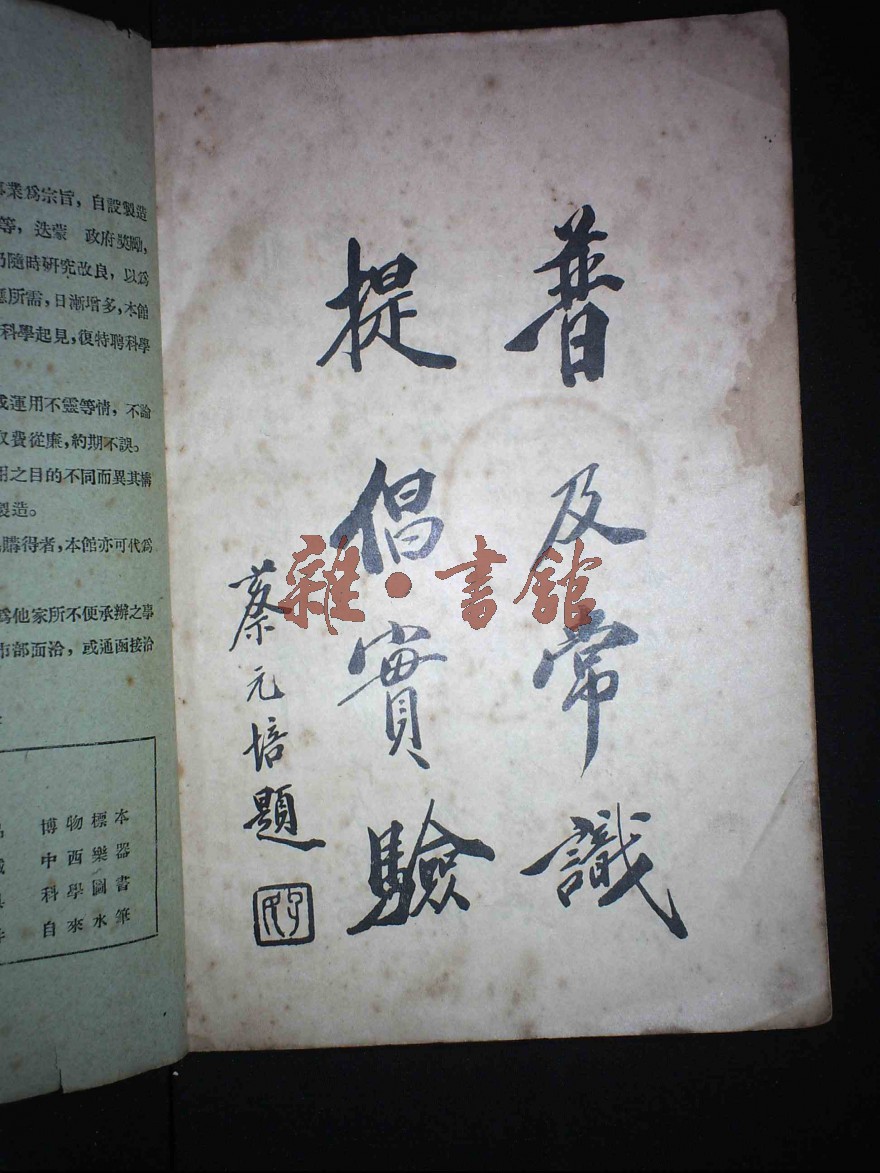 普及常識
提倡實驗
蔡元培題
孑民
雜·書館
事業爲宗旨，自設製造
等，迭蒙　政府奬勵，
仍隨時研究改良，以爲
應所需，日漸增多，本館
科學起見，復特聘科學
或運用不靈等情，不論
收費從廉，約期不誤。
用之目的不同而異其構
製造。
購得者，本館亦可代爲
爲他家所不便承辦之事
市部面洽，或通函接洽
博物標本
中西樂器
科學圖書
自來水筆